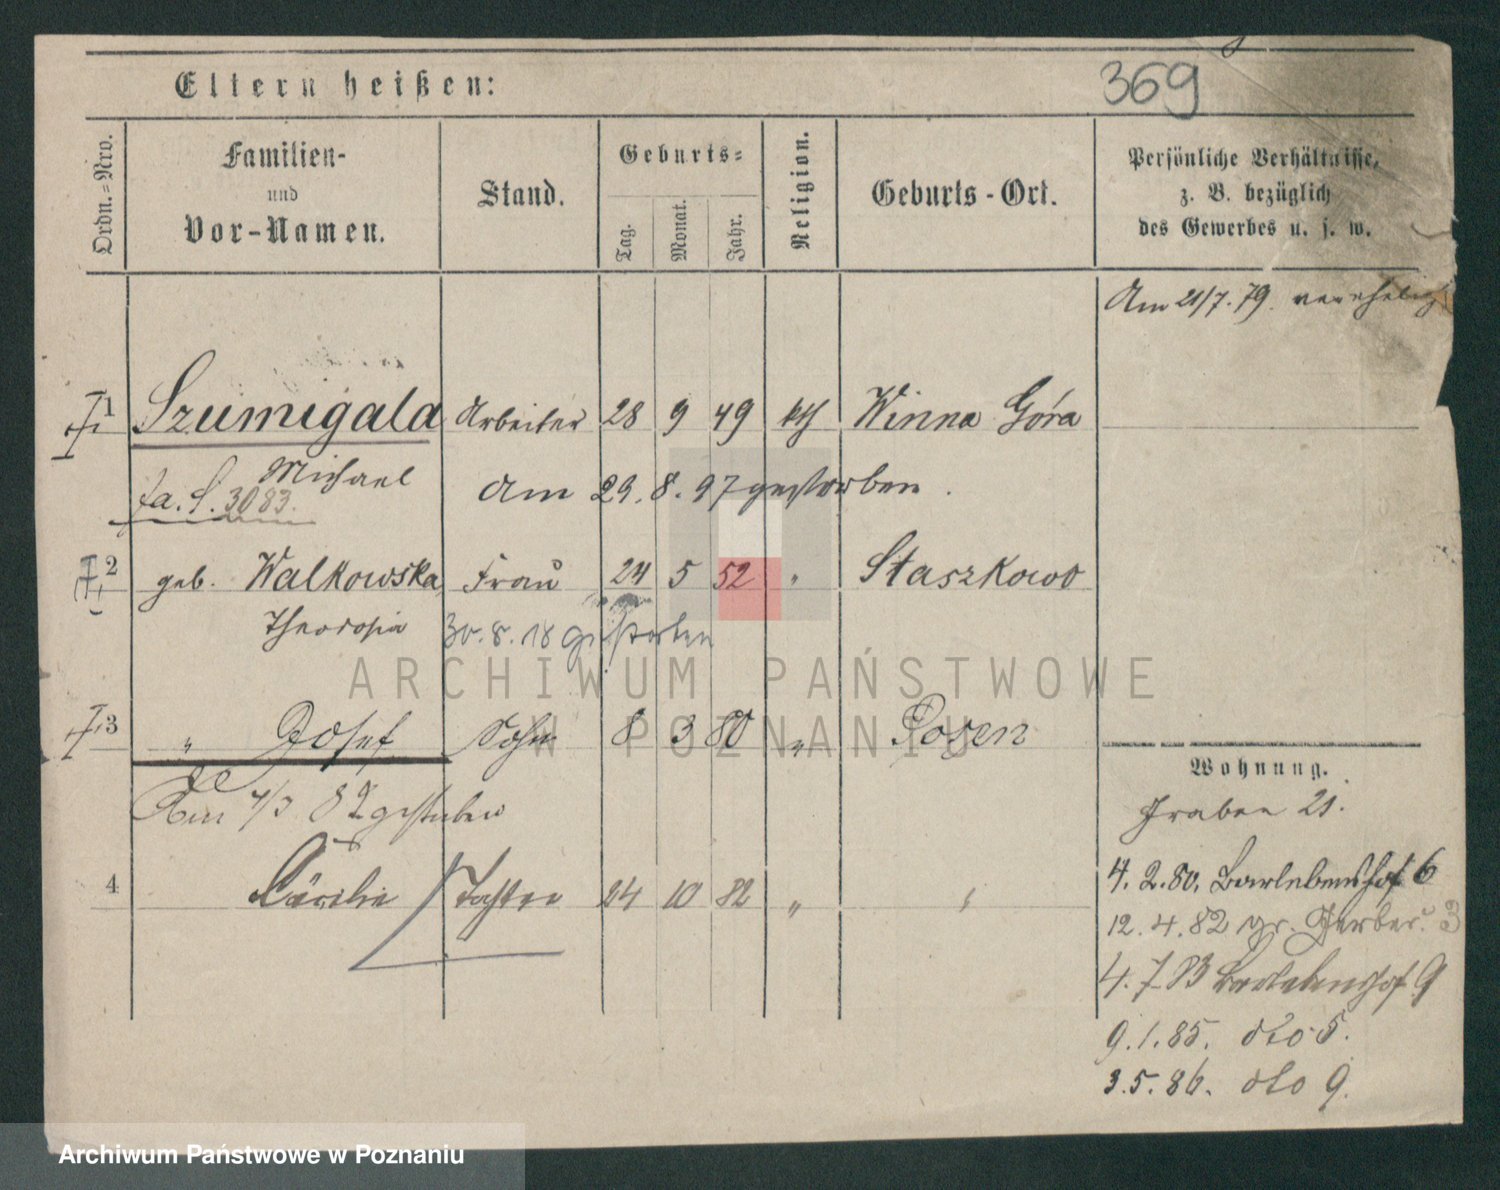 Eltern heißen:
369
Ordn.=Nro.
Familien-
und
Vor-Namen.
Stand.
Geburts=
Tag.
Monat.
Jahr.
Religion.
Geburts-Ort.
Persönliche Verhältnisse,
z. B. bezüglich
des Gewerbes u. s. w.
Am 21/7. 79. verehelig
1 Szumigala Arbeiter 28 9 49 kth Winna Góra
Michael
fa. S. 3083.
Am 29. 8. 97 gestorben.
2 geb. Walkowska Frau 24 5 52 " Staszkowo
Theodosia
30. 8. 18 gestorben
3 " Josef Sohn 8 3 80 " Posen
Am 4/3 82 gestorben
4 Cäcilie Tochter 24 10 82 " "
Wohnung.
Graben 21.
4. 2. 80. Barlebenshof 6
12. 4. 82 gr. Gerber.
4. 7. 83 Barlebenshof 9
9. 1. 85. dto 5.
3. 5. 86. dto 9.
ARCHIWUM PAŃSTWOWE
W POZNANIU
Archiwum Państwowe w Poznaniu